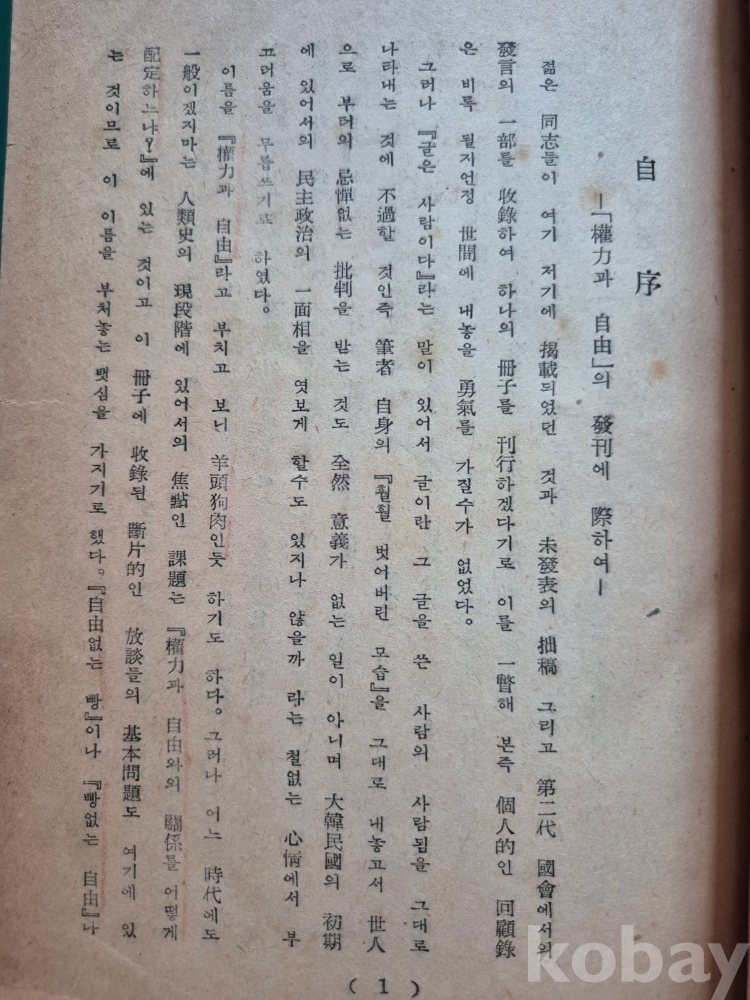 自序
―「權力과 自由」의 發刊에 際하여―
젊은 同志들이 여기 저기에 揭載되었던 것과 未發表의 拙稿 그리고 第二代 國會에서의
發言의 一部를 收錄하여 하나의 冊子를 刊行하겠다기로 이를 一瞥해 본즉 個人的인 回顧錄
은 비록 될지언정 世間에 내놓을 勇氣를 가질수가 없었다。
그러나 『글은 사람이다』라는 말이 있어서 글이란 그 글을 쓴 사람의 사람됨을 그대로
나타내는 것에 不過할 것인즉 筆者 自身의 『훨훨 벗어버린 모습』을 그대로 내놓고서 世人
으로 부터의 忌憚없는 批判을 받는 것도 全然 意義가 없는 일이 아니며 大韓民國의 初期
에 있어서의 民主政治의 一面相을 엿보게 할수도 있지나 않을까 라는 철없는 心情에서 부
끄러움을 무릅쓰기로 하였다。
이름을 『權力과 自由』라고 부치고 보니 羊頭狗肉인듯 하기도 하다。그러나 어느 時代에도
一般이겠지마는 人類史의 現段階에 있어서의 焦點인 課題는 『權力과 自由와의 關係를 어떻게
配定하느냐?』에 있는 것이고 이 冊子에 收錄된 斷片的인 放談들의 基本問題도 여기에 있
는 것이므로 이 이름을 부처놓는 뱃심을 가지기로 했다。『自由없는 빵』이나 『빵없는 自由』나
( 1 )
kobay